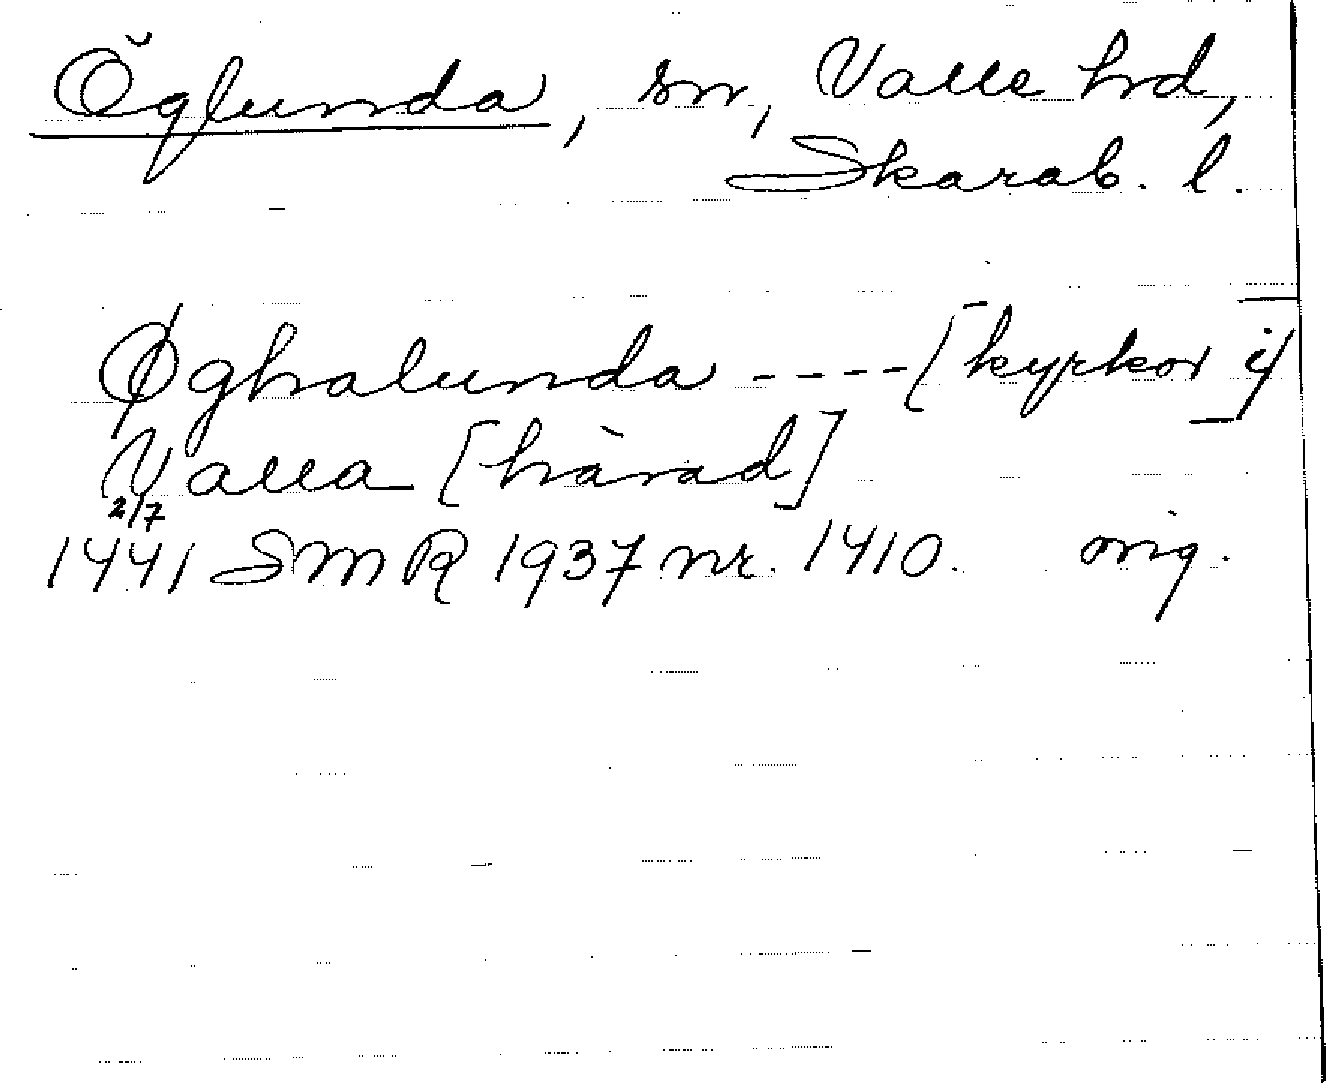 Öglunda, sn, Valle hrd,
Skarab. l.
Øghalunda ---- [kyrkor i]
Valla [härad]
2/7
1441 SMR 1937 nr. 1410. orig.